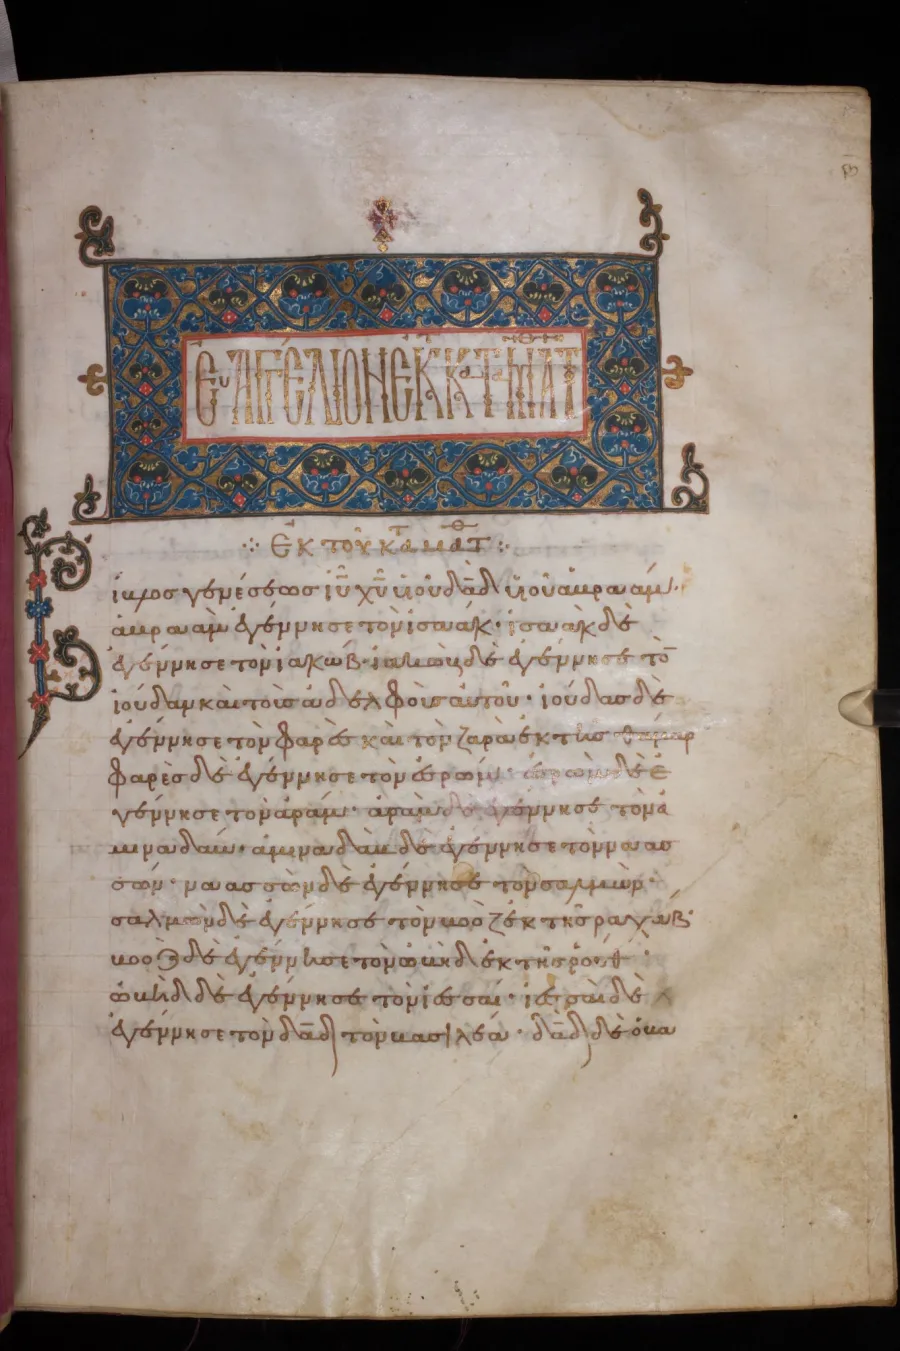 β
ΕΥΑΓΓΕΛΙΟΝ ΕΚ Κ ΤΑ ΜΑΤΘ
ἐκ τοῦ κατὰ ματθ
ίβλος γενέσεως ἰῦ χῦ υἱοῦ δᾱδ υἱοῦ ἀβραάμ·
ἀβραὰμ ἐγέννησε τὸν ἰσαάκ· ἰσαὰκ δὲ
ἐγέννησε τὸν ἰακώβ· ἰακὼβ δὲ ἐγέννησε τὸ̄
ἰούδαν καὶ τοὺς ἀδελφοὺς αὐτοῦ· ἰούδας δὲ
ἐγέννησε τὸν φαρὲς καὶ τὸν ζαρὰ ἐκ τῆς θάμαρ
φαρὲς δὲ ἐγέννησε τὸν ἐσρώμ· ἐσρὼμ δὲ ἐ
γέννησε τὸν ἀράμ· ἀρὰμ δὲ ἐγέννησε τὸν ἀ
μιναδάμ· ἀμιναδὰμ δὲ ἐγέννησε τὸν ναασ
σών· ναασσὼν δὲ ἐγέννησε τὸν σαλμών·
σαλμὼν δὲ ἐγέννησε τὸν βοὸζ ἐκ τῆς ραχάβ·
βοὸζ δὲ ἐγέννησε τὸν ὠβὴδ ἐκ τῆς ροὺθ·
ὠβὴδ δὲ ἐγέννησε τὸν ἰεσσαί· ἰεσσαὶ δὲ
ἐγέννησε τὸν δᾱδ τὸν βασιλέα· δᾱδ δὲ ὁ βα